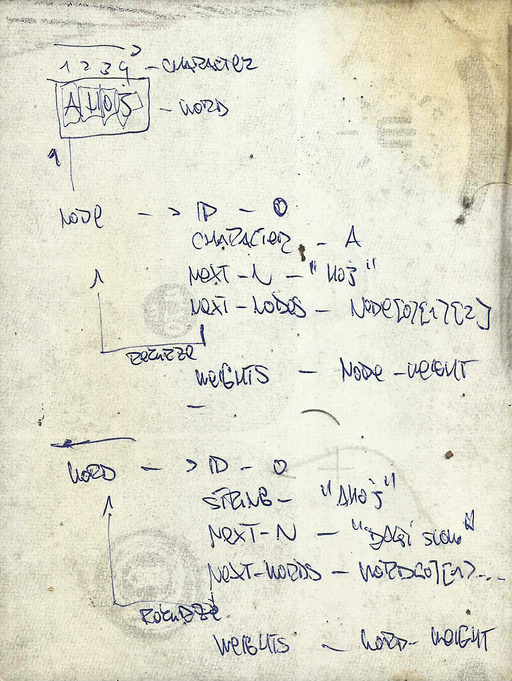 1 2 3 4 - CHARACTER
AHOJ - WORD
NODE -> ID - 0
CHARACTER - A
NEXT-N - "HOJ"
NEXT-NODES - NODE[0][1][2]
REKURZE
WEIGHTS - NODE-WEIGHT
WORD -> ID - 0
STRING - "AHOJ"
NEXT-N - "DALŠÍ SLOVO"
NEXT-WORDS - WORD[0][1]...
REKURZE
WEIGHTS - WORD-WEIGHT